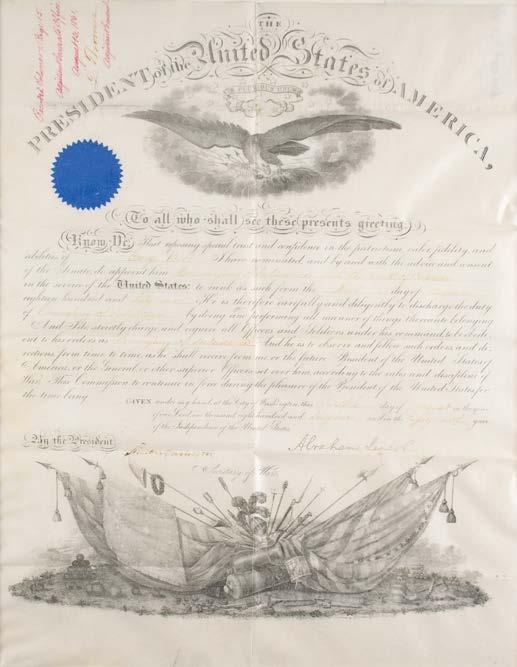 Adjutant General's Office
August 12, 1861
L. Thomas
Adjutant General
THE
PRESIDENT of the United States of AMERICA,
E PLURIBUS UNUM
To all who shall see these presents greeting:
Know Ye, That reposing special trust and confidence in the patriotism, valor, fidelity, and
abilities of George Bell I have nominated and by and with the advice and consent
of the Senate, do appoint him Commissary of Subsistence
in the service of the United States: to rank as such from the day of
eighteen hundred and He is therefore carefully and diligently to discharge the duty
of Commissary of Subsistence by doing and performing all manner of things thereunto belonging.
And I do strictly charge, and require all Officers and Soldiers under his command to be obedi-
ent to his orders as Commissary of Subsistence And he is to observe and follow such orders, and di-
rections, from time to time, as he shall receive from me, or the future President of the United States of
America, or the General, or other superior Officers set over him, according to the rules and discipline of
War. This Commission to continue in force during the pleasure of the President of the United States for
the time being.
GIVEN under my hand, at the City of Washington, this day of August in the year
of our Lord, one thousand, eight hundred and sixty one and in the Eighty sixth year
of the Independence of the United States.
By the President
Abraham Lincoln
Simon Cameron
Secretary of War.